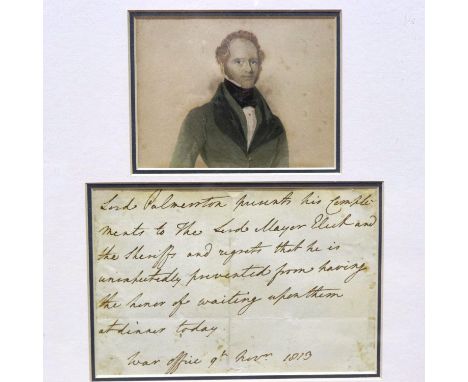 Lord Palmerston presents his Compli-
ments to The Lord Mayor Elect and
the Sheriffs and regrets that he is
unexpectedly prevented from having
the honor of waiting upon them
at dinner today
War office 9th Novr. 1813